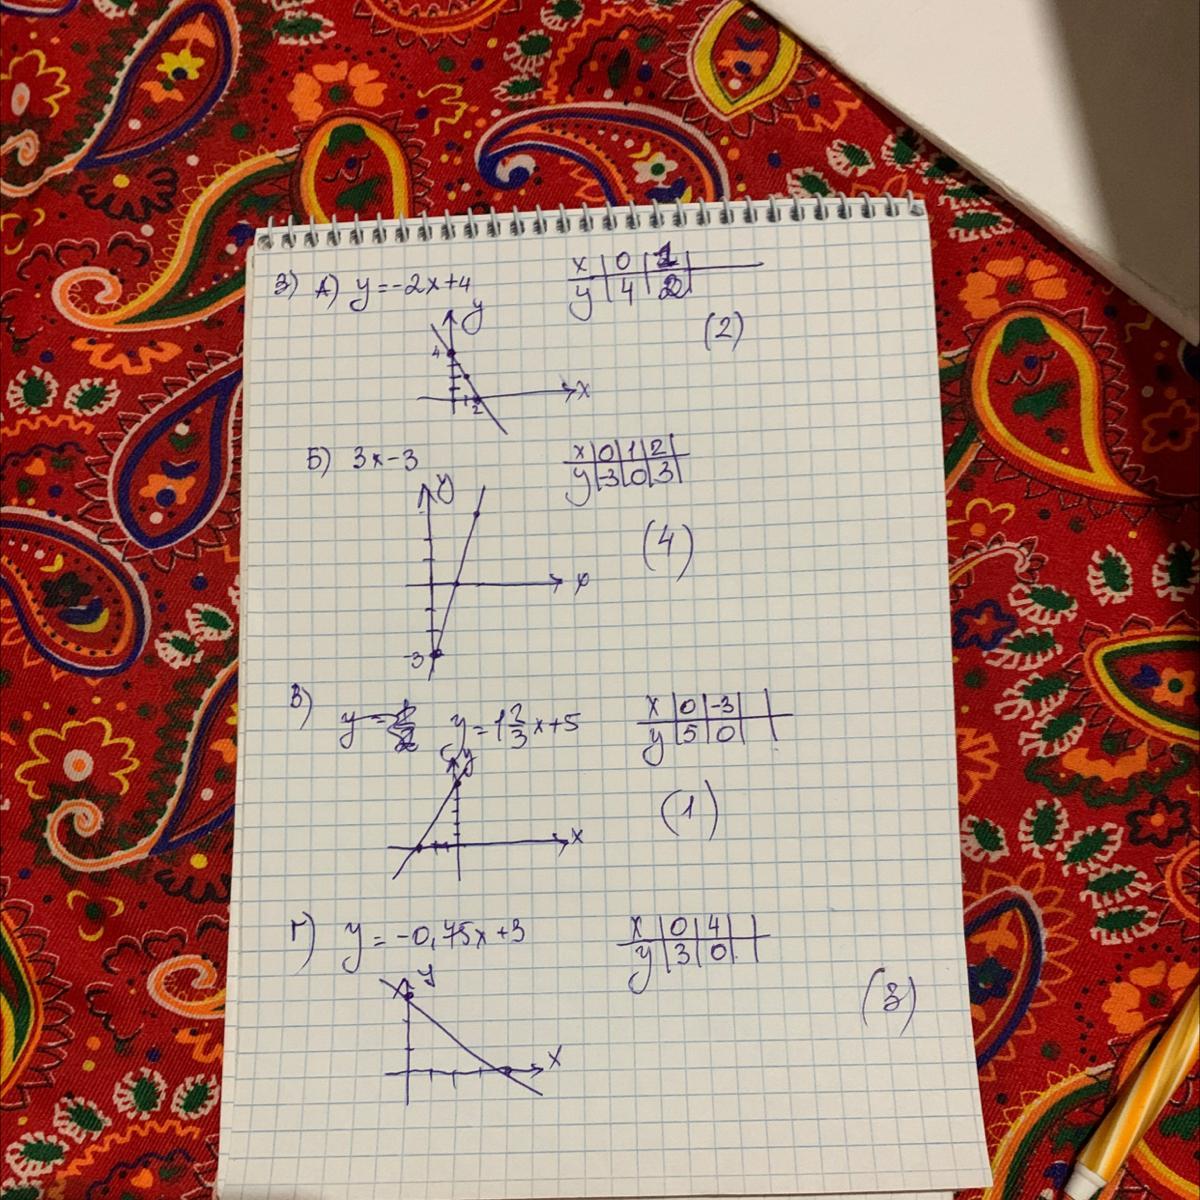 3) А) y=-2x+4
x 0 1
y 4 2
y
4
1 2 x
(2)
Б) 3x-3
x 0 1 2
y -3 0 3
y
x
-3
(4)
В) y= y=1 2/3 x+5
x 0 -3
y 5 0
y
x
(1)
Г) y=-0,75x+3
x 0 4
y 3 0
y
x
(3)